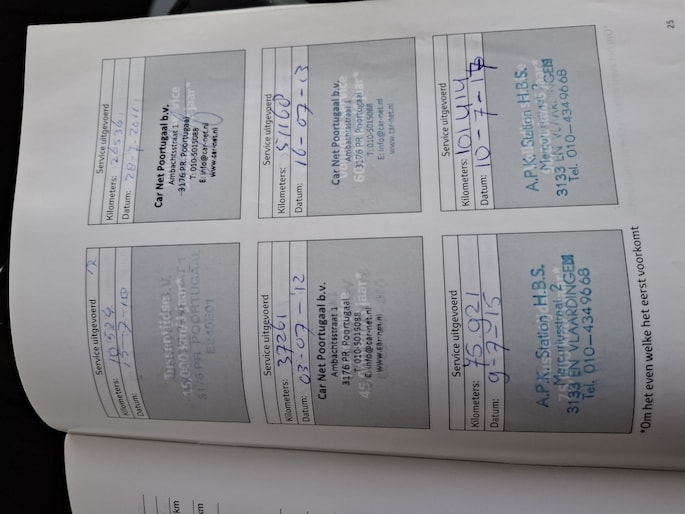 Service uitgevoerd
Kilometers: 10524
Datum: 15-7-10
15.000 km/
3176 PR POORTUGAAL
Service uitgevoerd
Kilometers:
Datum: 28-7-2011
Car Net Poortugaal b.v.
Ambachtsstraat 1
3176 PR Poortugaal
T: 010-5015088
E: info@car-net.nl
www.car-net.nl
Service uitgevoerd
Kilometers: 37261
Datum: 03-07-12
Car Net Poortugaal b.v.
Ambachtsstraat 1
3176 PR Poortugaal
T: 010-5015088
E: info@car-net.nl
www.car-net.nl
Service uitgevoerd
Kilometers: 51160
Datum: 16-07-13
Car Net Poortugaal b.v.
Ambachtsstraat 1
3176 PR Poortugaal
T: 010-5015088
E: info@car-net.nl
www.car-net.nl
Service uitgevoerd
Kilometers: 75921
Datum: 9-7-15
A.P.K. Station H.B.S.
Mercuriusstraat 2
3133 EN VLAARDINGEN
Tel. 010-4349668
Service uitgevoerd
Kilometers: 101414
Datum: 10-7-17
A.P.K. Station H.B.S.
Mercuriusstraat 2
3133 EN VLAARDINGEN
Tel. 010-4349668
*Om het even welke het eerst voorkomt
25
km
km